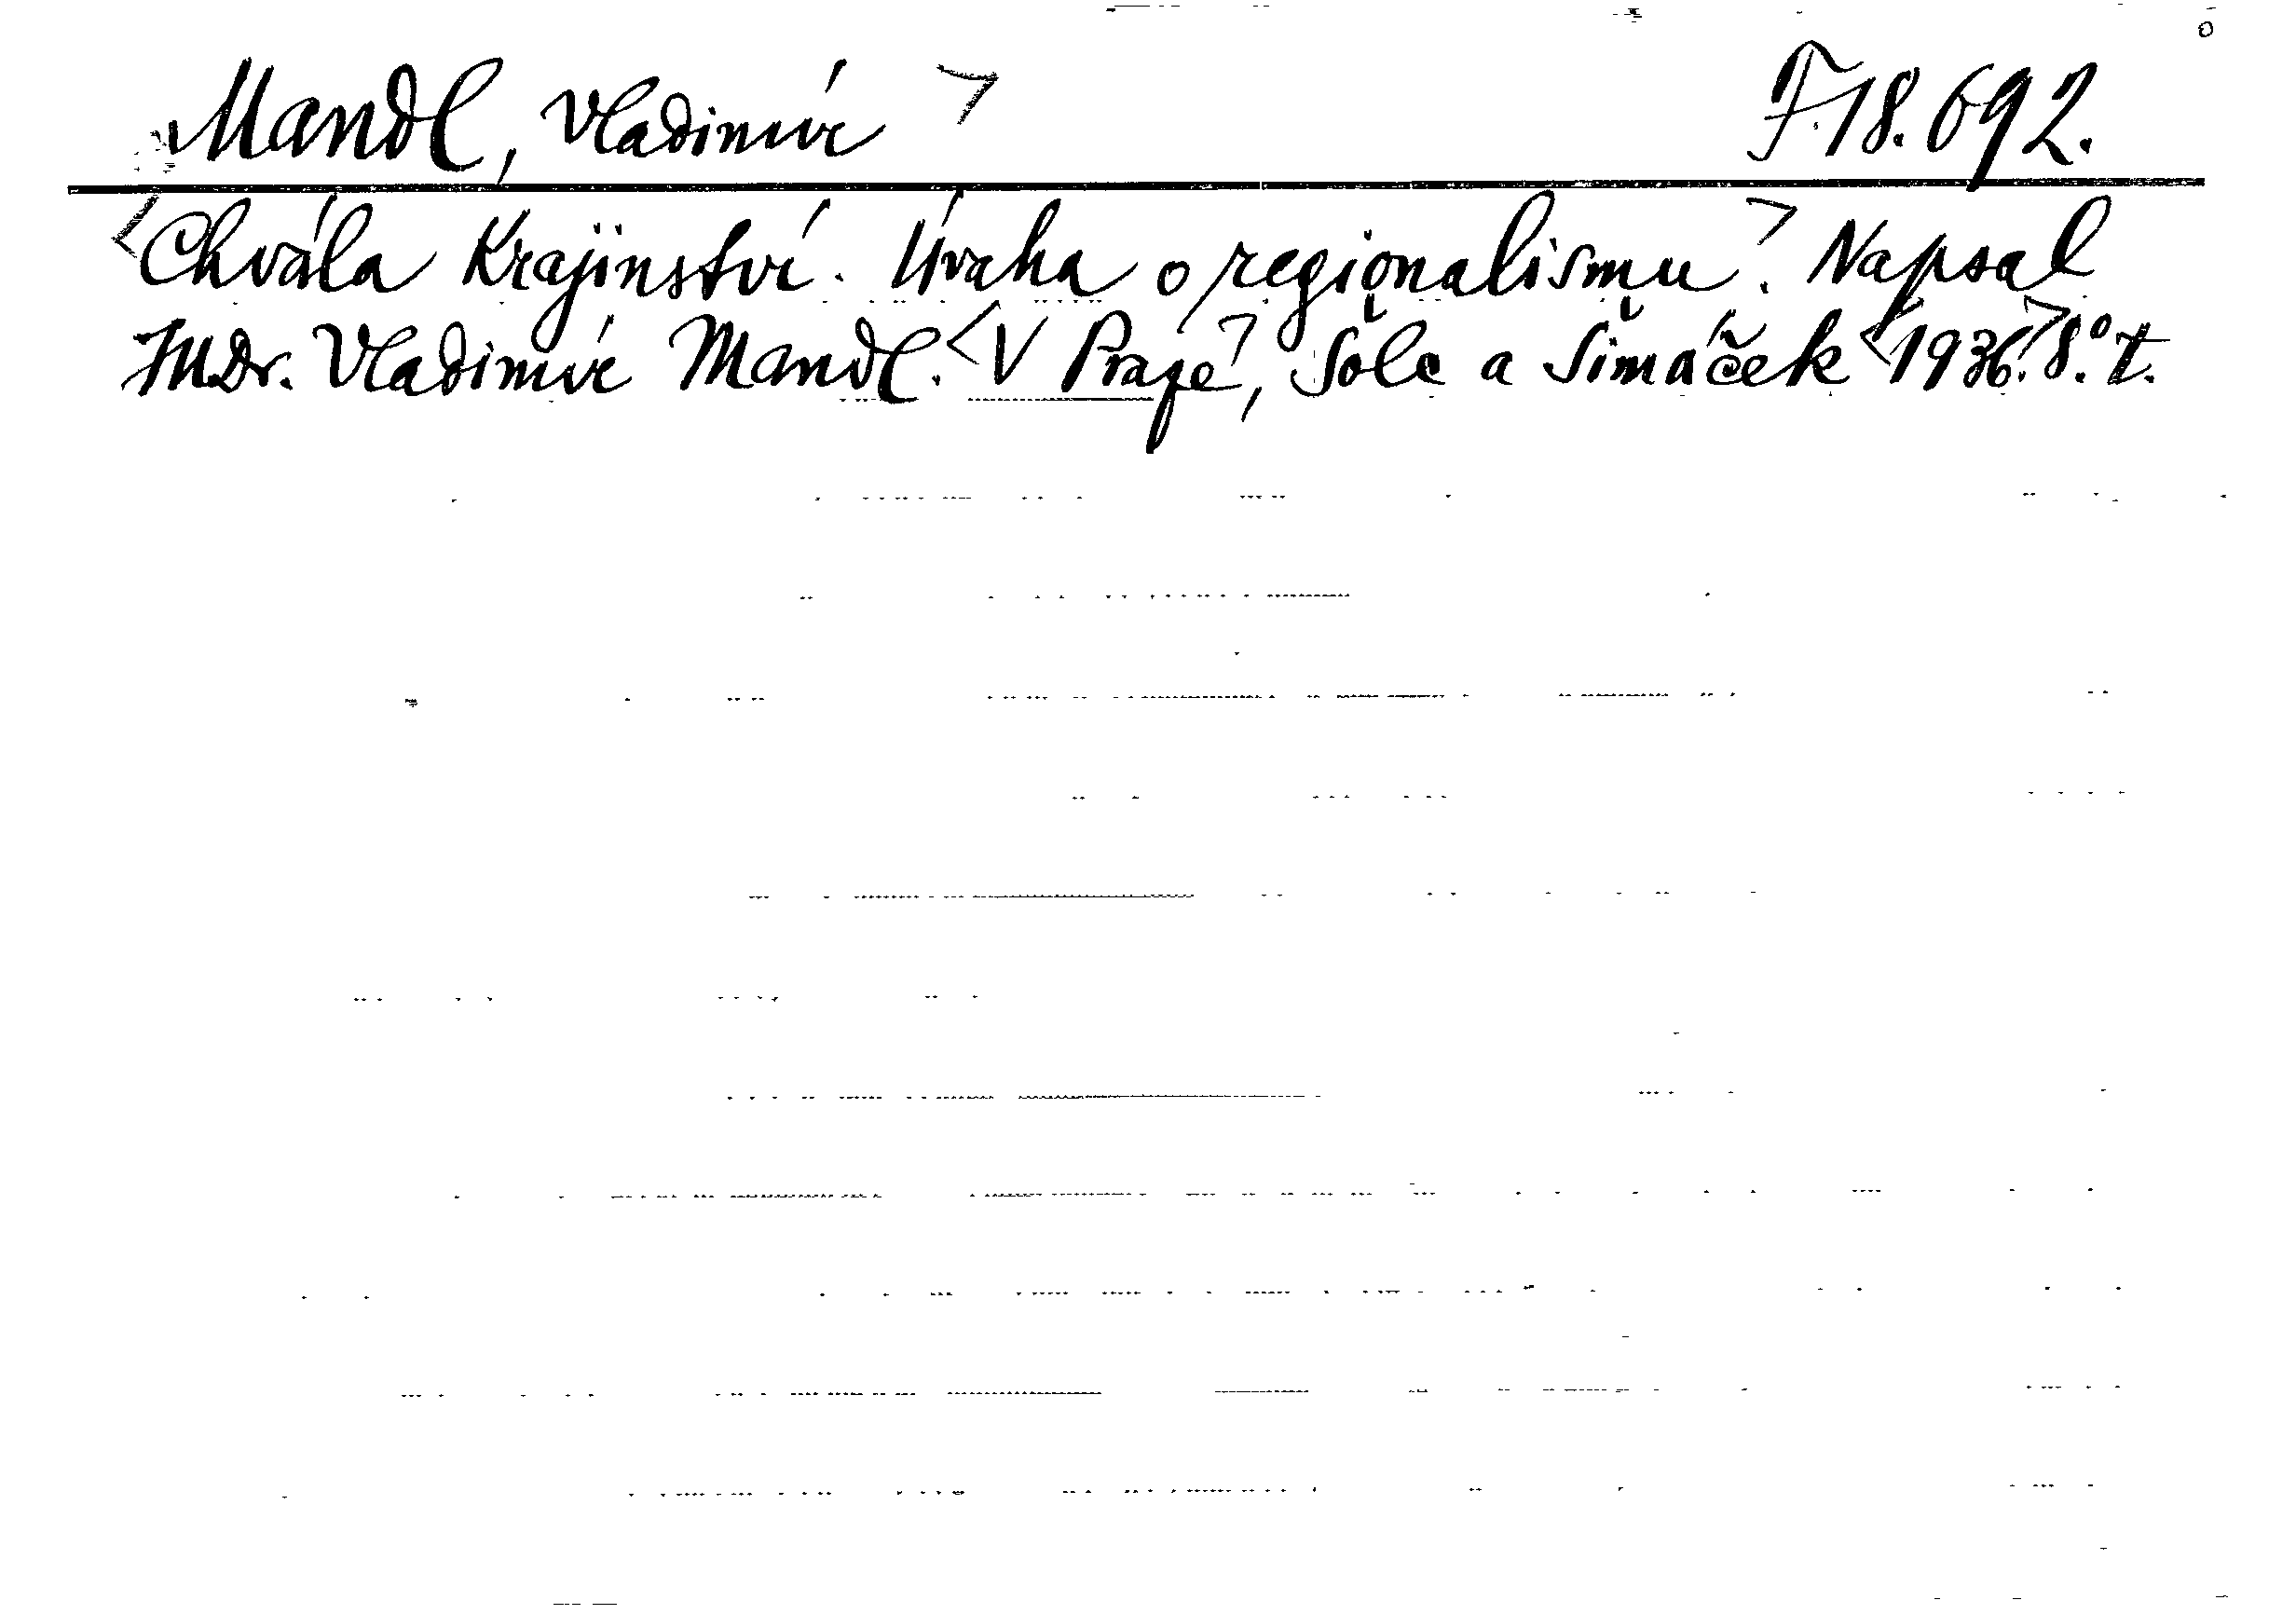 Mandl, Vladimír > F.18.692.
<Chvála Krajinství. Úvaha o regionalismu>. Napsal
JUDr. Vladimír Mandl. <V Praze>, Šolc a Šimáček <1936.> 8.° t.